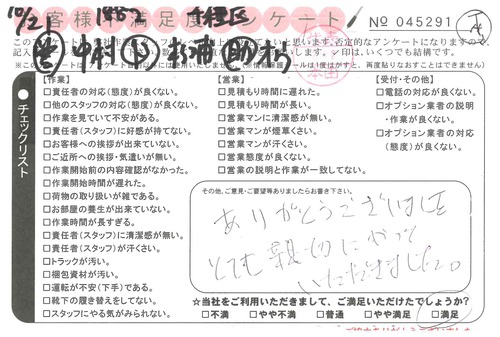 10/21 1487 千種区
お客様満足度アンケート!
No 045291
このアンケート
否定的なアンケートになりますので、
記入
印は、いくつでも結構です。
(個人情報保護シールは1度はがすと、再度貼りなおすことはできません)
チェックリスト
【作業】
□責任者の対応(態度)が良くない。
□他のスタッフの対応(態度)が良くない。
□作業を見ていて不安がある。
□責任者(スタッフ)に好感が持てない。
□お客様への挨拶が出来ていない。
□ご近所への挨拶・気遣いが無い。
□作業開始前の内容確認がなかった。
□作業開始時間が遅れた。
□荷物の取り扱いが雑である。
□お部屋の養生が出来ていない。
□作業時間が長すぎる。
□責任者(スタッフ)に清潔感が無い。
□責任者(スタッフ)が汗くさい。
□トラックが汚い。
□梱包資材が汚い。
□運転が安全(下手)である。
□靴下の履き替えをしてない。
□スタッフにやる気がみられない。
【営業】
□見積もり時間に遅れた。
□見積もり時間が長い。
□営業マンに清潔感が無い。
□営業マンが煙草くさい。
□営業マンが汗くさい。
□営業態度が良くない。
□営業の説明と作業が一致してない。
【受付・その他】
□電話の対応が良くない。
□オプション業者の説明・作業が良くない。
□オプション業者の対応(態度)が良くない。
その他、ご意見・ご要望等ありましたらお書き下さい。
ありがとうございました
とても親切にやって
いただきました。
☆当社をご利用いただきまして、ご満足いただけたでしょうか?
□不満 □やや不満 □普通 □やや満足 □満足